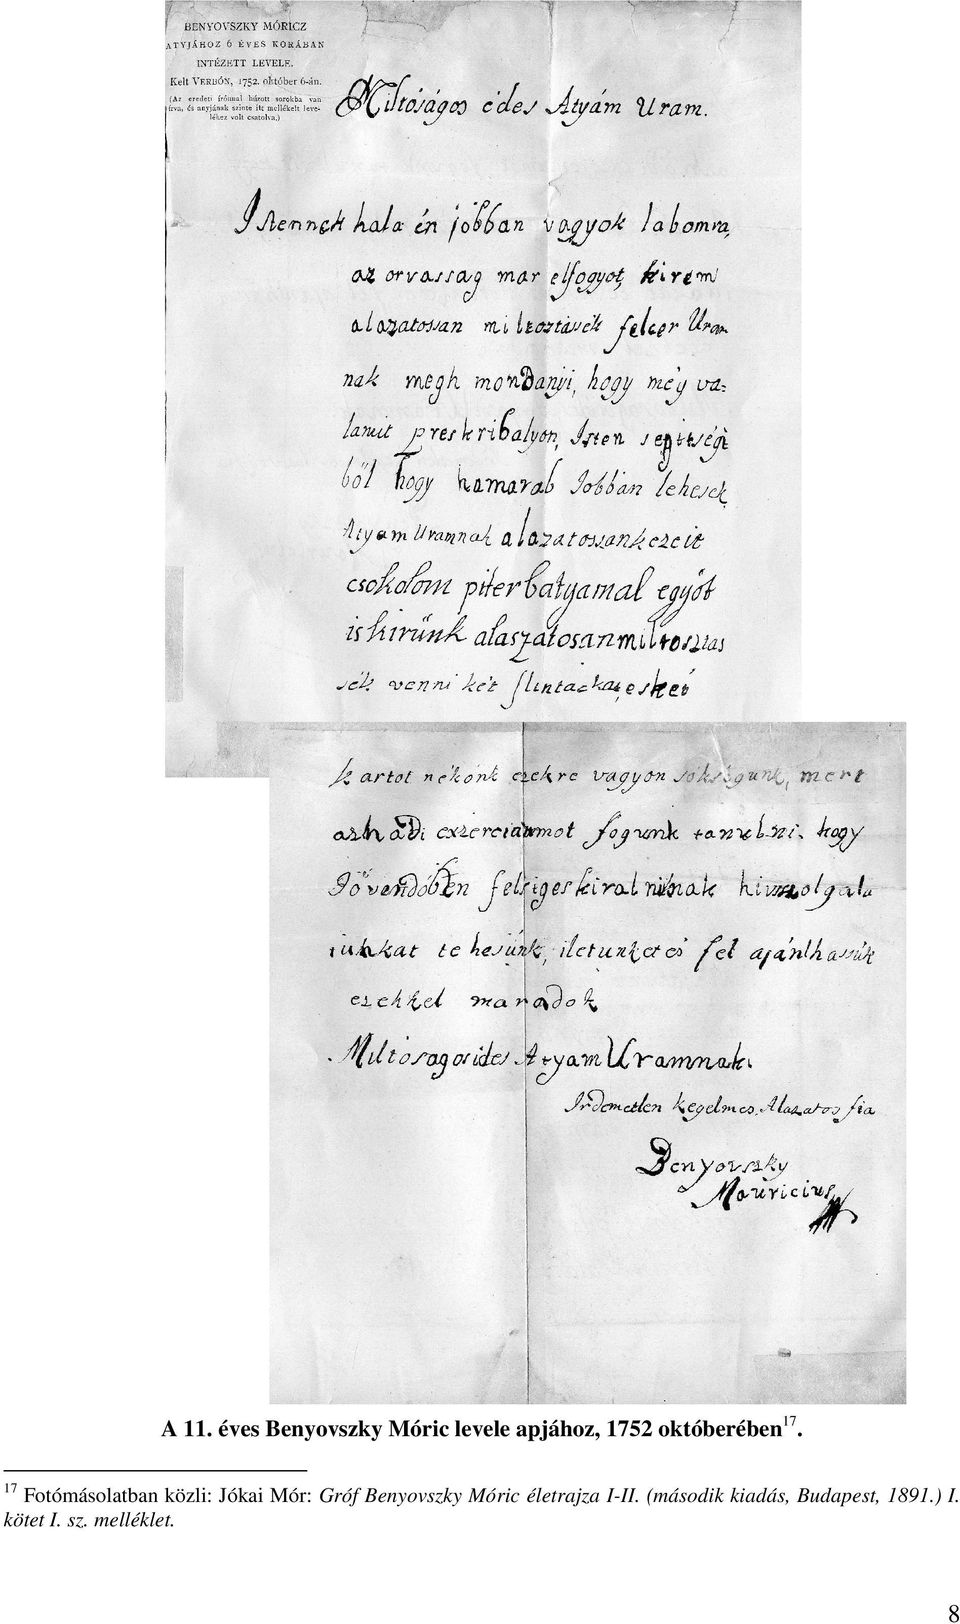 BENYOVSZKY MÓRICZ
ATYJÁHOZ 6 ÉVES KORÁBAN
INTÉZETT LEVELE.
Kelt VERBÓN, 1752. október 6-án.
(Az eredeti írónnal húzott sorokba van
írva, és anyjának szinte itt mellékelt leve-
léhez volt csatolva.)
Miltóságos édes Atyám Uram.
Istennek hala én jobban vagyok labomra,
az orvassag mar elfogyot, kirem
alazatossan miltoztassék felcer Uram
nak megh mondanyi, hogy még va-
lamit preskribalyon, Isten segitségi
ből hogy hamarab Jobban lehessek,
Atyam Uramnak alazatossan kezeit
csokolom piter batyamal egyöt
is kirünk alaszatosan miltosztas
sék venni két flintackat, es két
kartot nékönk ezekre vagyon sökségunk, mert
az hadi exzerciaumot fogunk tanulni, hogy
Jövendőben felsiges kiralninak hiv szolgala
tunkat tehesünk, iletunket és fel ajánlhassúk
ezekkel maradok
Miltosagos ides Atyam Uramnak
Irdemetlen kegelmes Alazatos fia
Benyovszky
Mauricius
A 11. éves Benyovszky Móric levele apjához, 1752 októberében17.
17 Fotómásolatban közli: Jókai Mór: Gróf Benyovszky Móric életrajza I-II. (második kiadás, Budapest, 1891.) I.
kötet I. sz. melléklet.
8